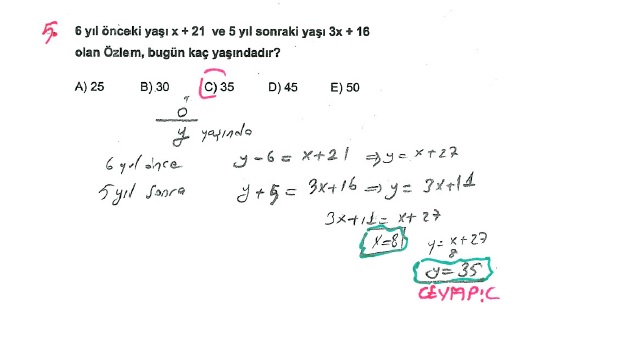 5.
6 yıl önceki yaşı x + 21 ve 5 yıl sonraki yaşı 3x + 16
olan Özlem, bugün kaç yaşındadır?
A) 25 B) 30 C) 35 D) 45 E) 50
Ö
y yaşında
6 yıl önce y - 6 = x + 21 ⇒ y = x + 27
5 yıl sonra y + 5 = 3x + 16 ⇒ y = 3x + 11
3x + 11 = x + 27
x = 8 y = x + 27
8
y = 35
CEVAP: C